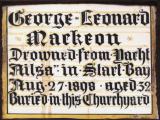 George Leonard
Mackeon
Drowned from Yacht
"Ailsa" in Start Bay
Aug 27 1898 aged 32
Buried in this Churchyard